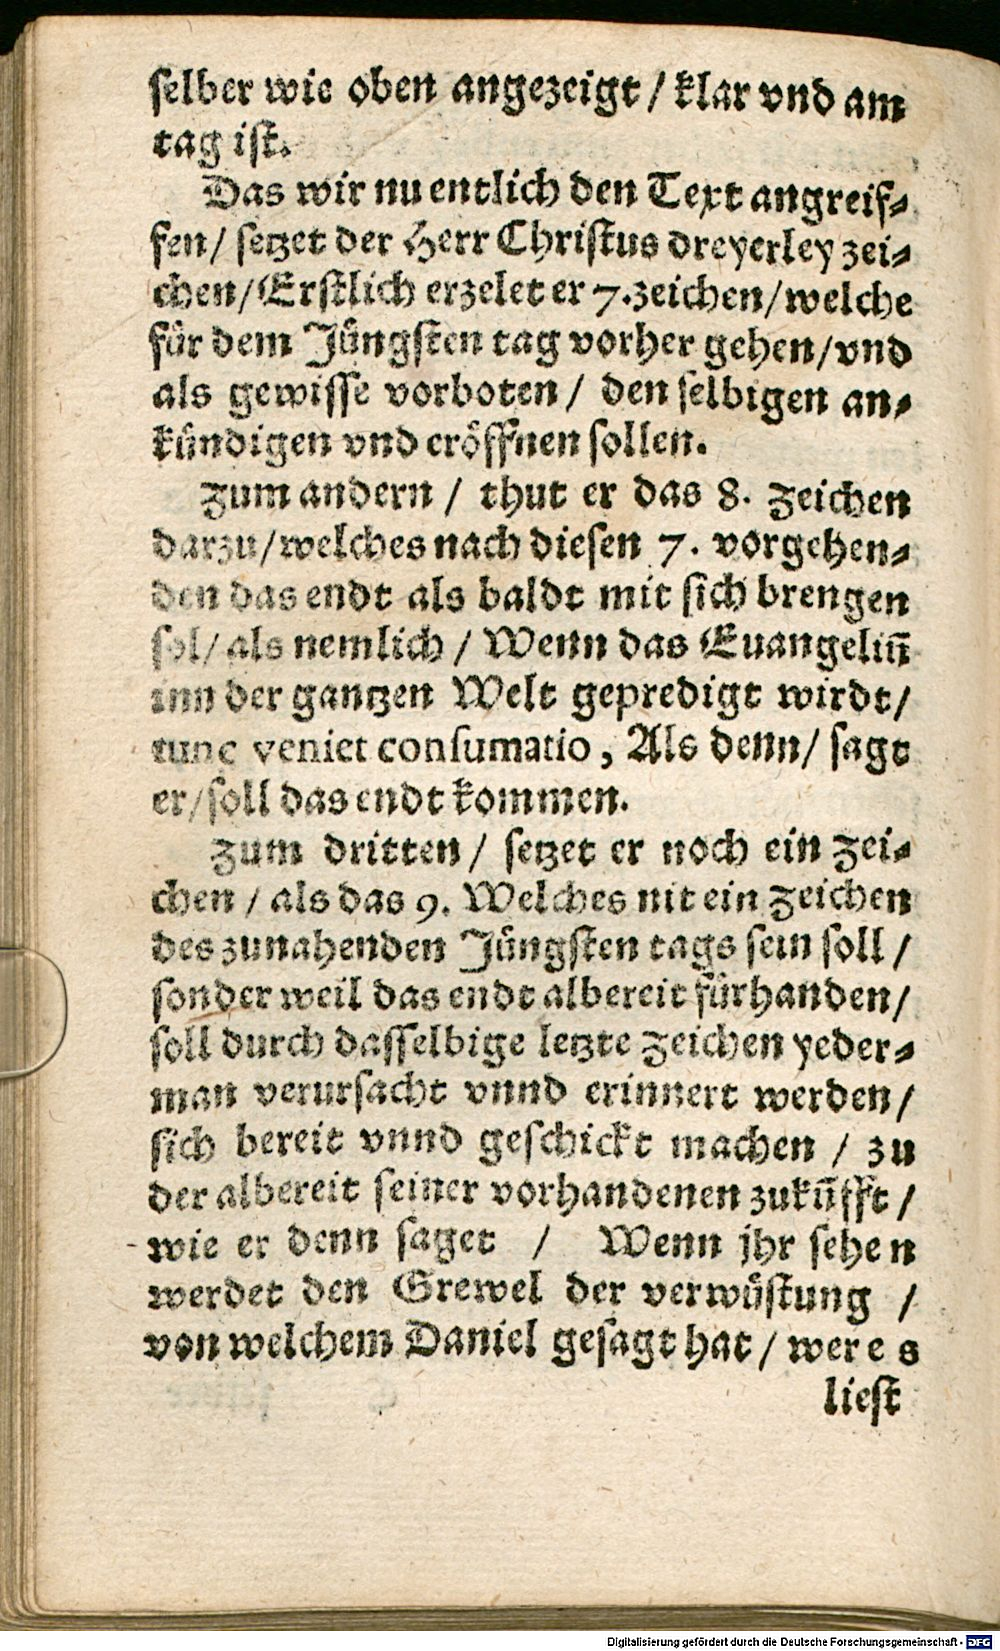 ſelber wie oben angezeigt / klar vnd am
tag iſt.
Das wir nu entlich den Text angreif⸗
fen / ſetzet der Herr Chriſtus dreyerley zei⸗
chen / Erſtlich erzelet er 7. zeichen / welche
fuͤr dem Juͤngſten tag vorher gehen / vnd
als gewiſſe vorboten / den ſelbigen an⸗
kuͤndigen vnd eroͤffnen ſollen.
Zum andern / thut er das 8. Zeichen
darzu / welches nach dieſen 7. vorgehen⸗
den das endt als baldt mit ſich brengen
ſol / als nemlich / Wenn das Euangeliū
inn der gantzen Welt gepredigt wirdt /
tunc veniet conſumatio, Als denn / ſagt
er / ſoll das endt kommen.
Zum dritten / ſetzet er noch ein Zei⸗
chen / als das 9. Welches nit ein Zeichen
des zunahenden Juͤngſten tags ſein ſoll /
ſonder weil das endt albereit fuͤrhanden /
ſoll durch daſſelbige letzte Zeichen yeder⸗
man verurſacht vnnd erinnert werden /
ſich bereit vnnd geſchickt machen / zu
der albereit ſeiner vorhandenen zukūfft /
wie er denn ſaget / Wenn jhr ſehen
werdet den Grewel der verwuͤſtung /
von welchem Daniel geſagt hat / wer e s
lieſt
Digitalisierung gefördert durch die Deutsche Forschungsgemeinschaft - DFG